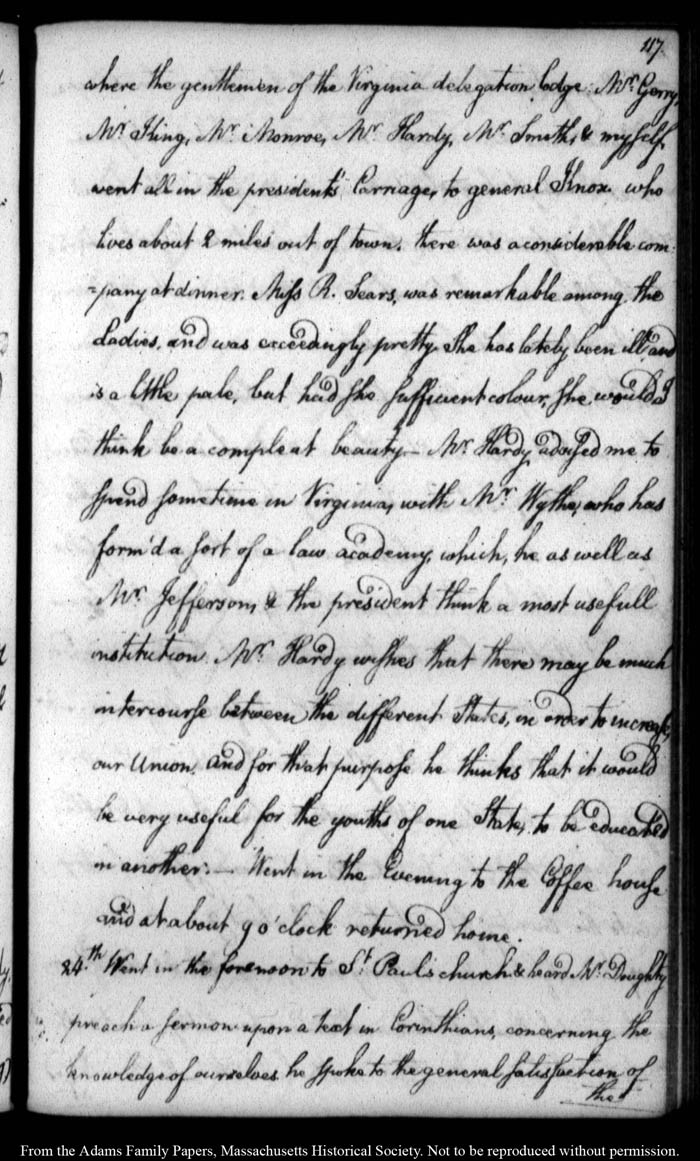 117.
where the gentlemen of the Virginia delegation lodge: Mr. Gerry,
Mr. King, Mr. Monroe, Mr. Hardy, Mr. Smith, & myself,
went all in the presidents' Carriage, to general Knox who
lives about 2 miles out of town. there was a considerable com-
=pany at dinner. Miss R. Sears, was remarkable among the
Ladies, and was exceedingly pretty. She has lately been ill and
is a little pale, but had she sufficient colour, she would I
think be a compleat beauty.— Mr. Hardy advised me to
spend sometime in Virginia, with Mr. Wythe, who has
form'd a sort of a law academy, which, he as well as
Mr. Jefferson, & the president think a most usefull
institution. Mr. Hardy wishes that there may be much
intercourse between the different States, in order to increase,
our Union. and for that purpose he thinks that it would
be very useful for the youths of one State, to be educated
in another.— Went in the Evening to the Coffee house
and at about 9 o'clock returned home.
24.th Went in the forenoon to St. Paul's church & heard Mr. Doughty
preach a sermon upon a text in Corinthians, concerning the
knowledge of ourselves. he spoke to the general satisfaction of
the
From the Adams Family Papers, Massachusetts Historical Society. Not to be reproduced without permission.